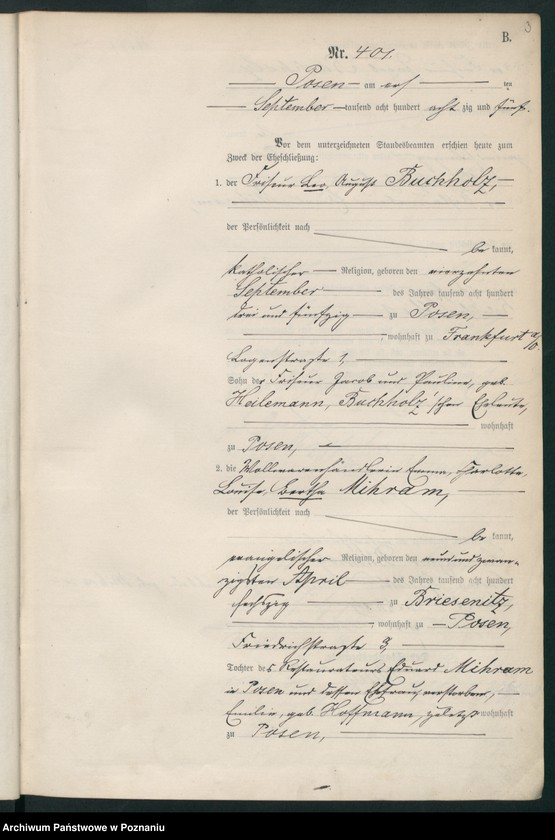 3
B.
Nr. 401.
Posen am ersten
September tausend acht hundert acht zig und fünf.
Vor dem unterzeichneten Standesbeamten erschien heute zum
Zweck der Eheschließung:
1. der Friseur Leo, August Buchholz,
der Persönlichkeit nach
be kannt,
katholischer Religion, geboren den vierzehnten
September des Jahres tausend acht hundert
drei und fünfzig zu Posen,
, wohnhaft zu Frankfurt a/O.
Logenstraße 1,
Sohn der Friseur Jacob und Pauline, geb.
Heilemann, Buchholz'schen Eheleute,
wohnhaft
zu Posen,
2. die Wollwarenhändlerin Emma, Charlotte,
Louise, Bertha Mihram,
der Persönlichkeit nach
be kannt,
evangelischer Religion, geboren den neunundzwan-
zigsten April des Jahres tausend acht hundert
sechszig zu Briesenitz,
, wohnhaft zu Posen,
Friedrichstraße 3,
Tochter des Restaurateurs Eduard Mihram
in Posen und dessen Ehefrau, verstorben,
Emilie, geb. Hoffmann, zuletzt wohnhaft
zu Posen,
Archiwum Państwowe w Poznaniu